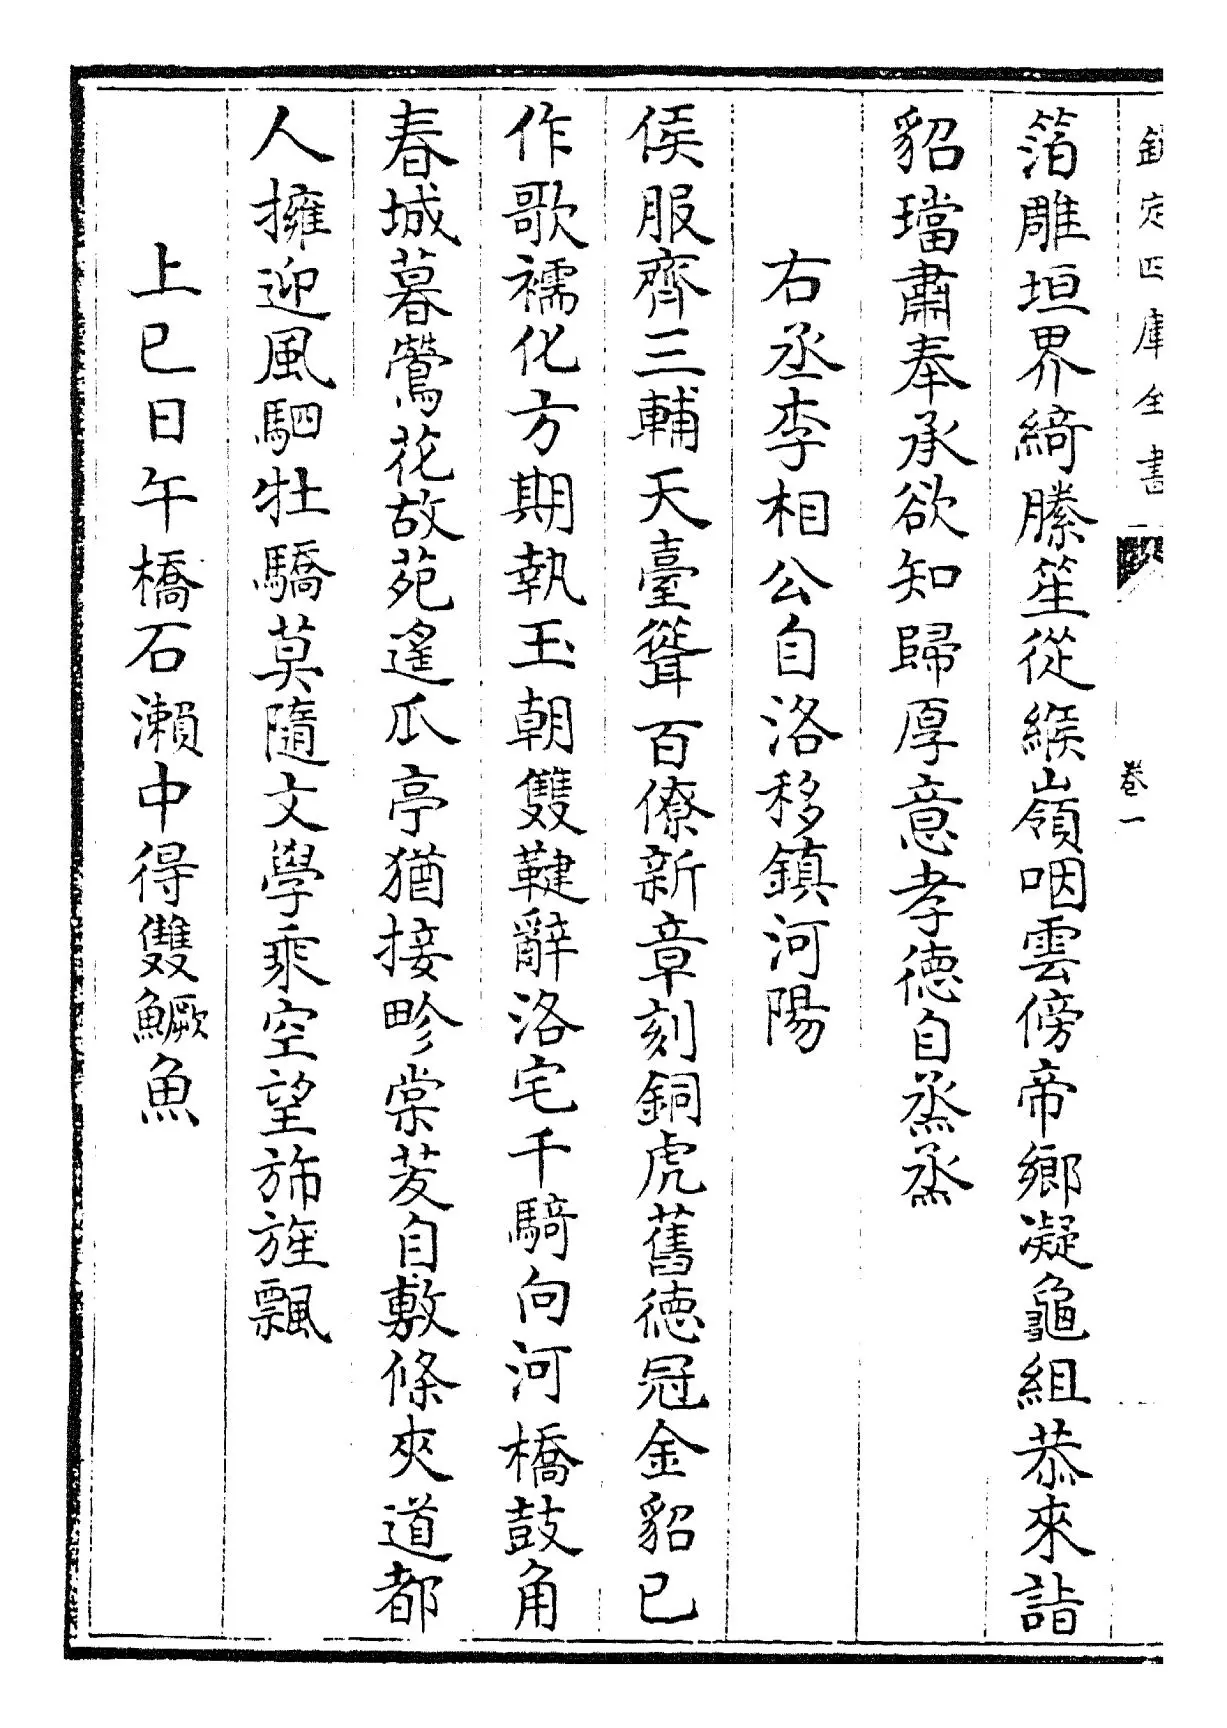 欽定四庫全書
卷一
箔雕垣界綺縢笙從緱嶺咽雲傍帝鄉凝龜組恭來詣
貂璫肅奉承欲知歸厚意孝德自烝烝
右丞李相公自洛移鎮河陽
侯服齊三輔天臺聳百僚新章刻銅虎舊德冠金貂已
作歌襦化方期執玉朝雙鞬辭洛宅千騎向河橋鼓角
春城暮鶯花故苑遙瓜亭猶接畛棠茇自敷條夾道都
人擁迎風駟牡驕莫隨文學乘空望斾旌飄
上巳日午橋石瀨中得雙鱖魚